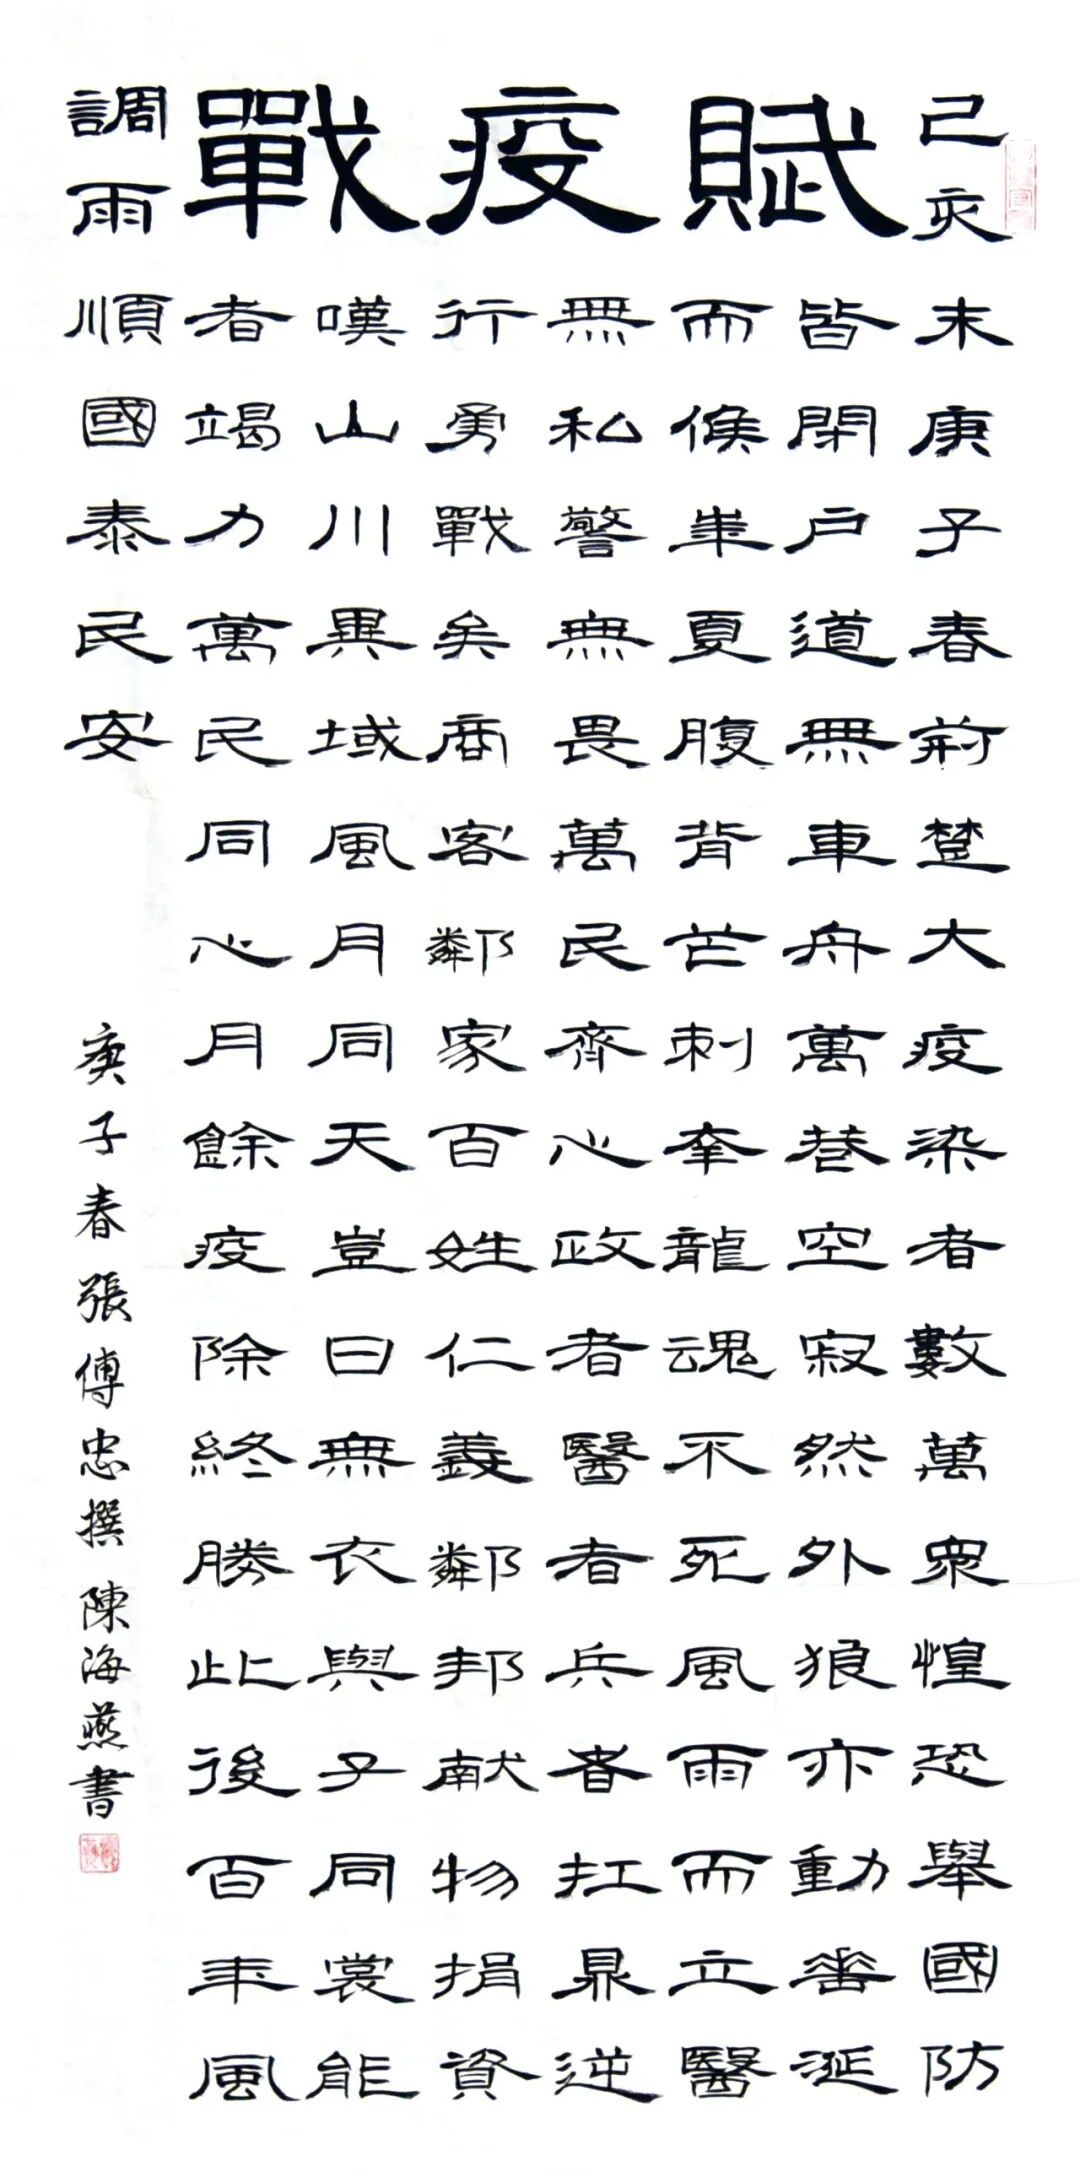 戰疫賦
己亥末庚子春荊楚大疫染者數萬衆惶恐舉國防
皆閉戶道無車舟萬巷空寂然外狼亦動垂涎
而候華夏腹背芒刺幸龍魂不死風雨而立醫
無私警無畏萬民齊心政者醫者兵者扛鼎逆
行勇戰矣商客鄰家百姓仁義鄰邦献物捐資
嘆山川異域風月同天豈曰無衣與子同裳能
者竭力萬民同心月餘疫除終勝此後百年風
調雨順國泰民安
庚子春張傅忠撰 陳海燕書